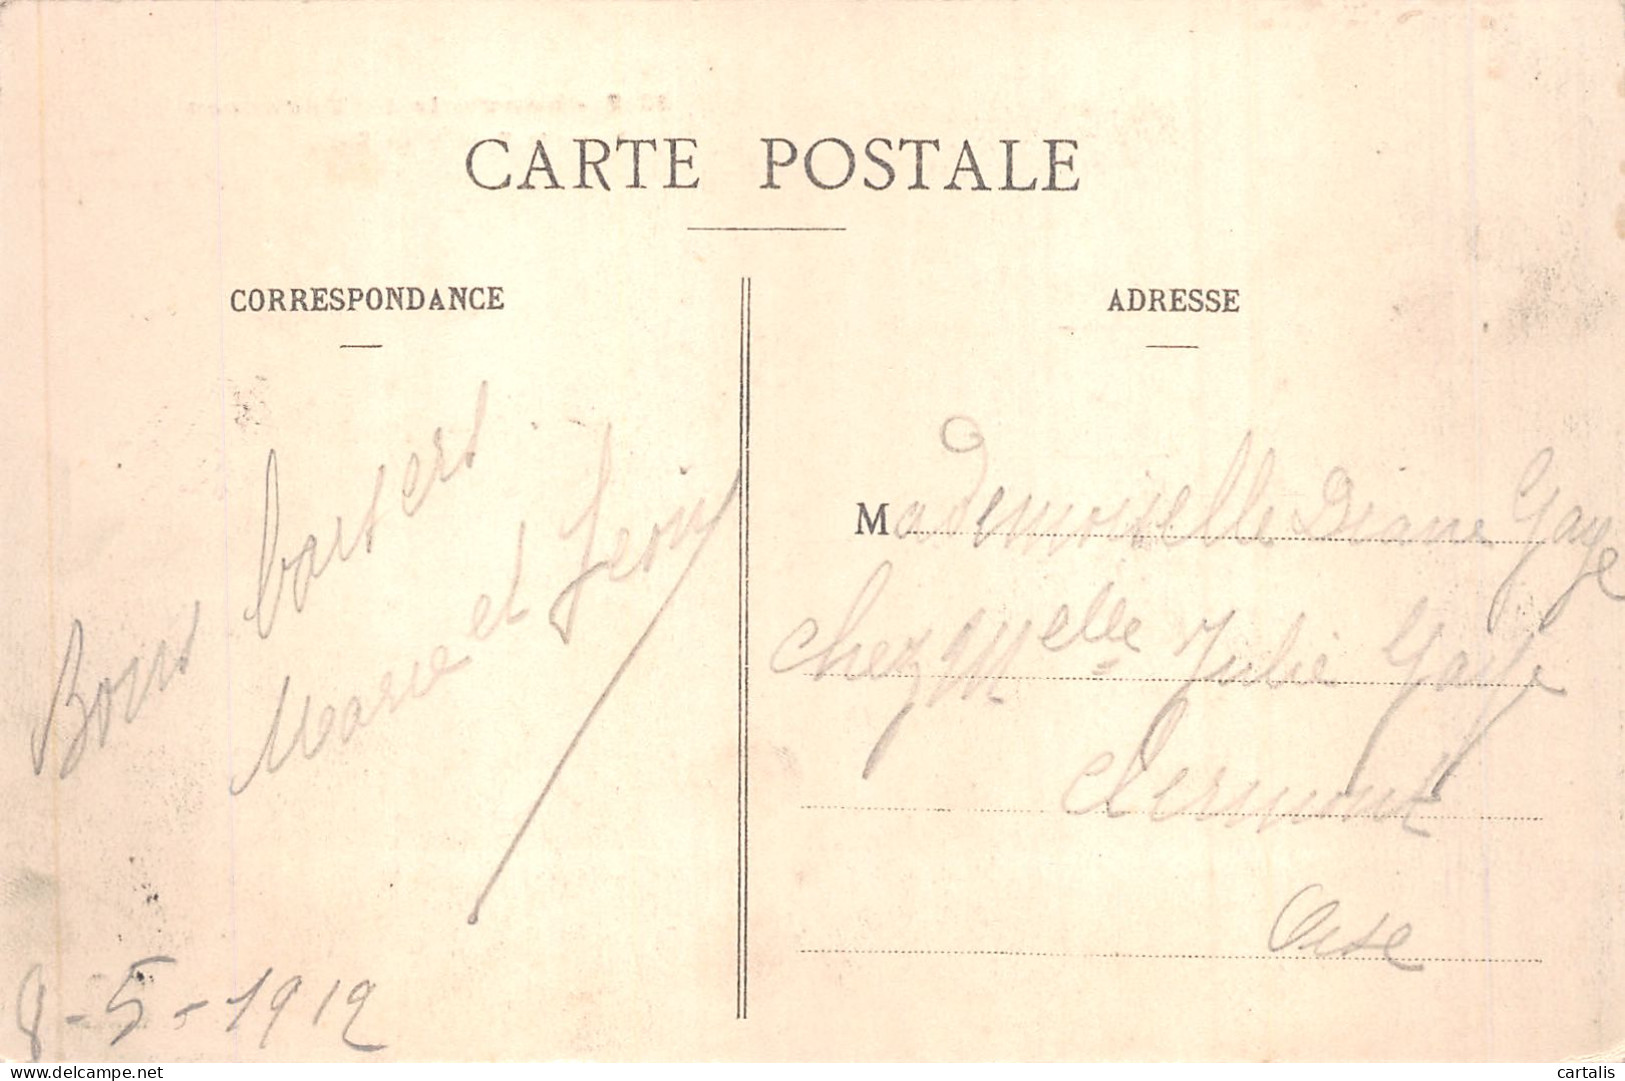 CARTE POSTALE
CORRESPONDANCE
Bons baisers
Marie et
8-5-1912
ADRESSE
Mademoiselle Diane Gaye
chez Melle Julie Gaye
Clermont
Oise
delcampe.net
cartalis